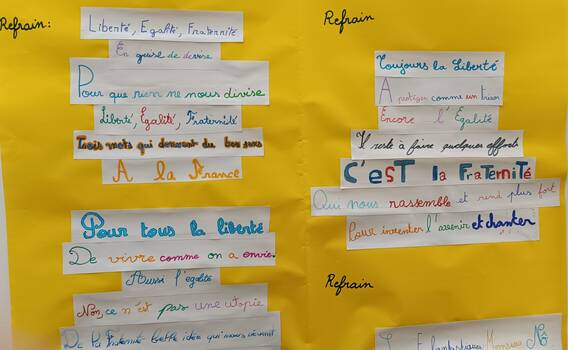 Refrain:
Liberté, Egalité, Fraternité
En guise de devise
Pour que rien ne nous divise
Liberté, Egalité, Fraternité
Trois mots qui donnent du bon sens
A la France
Pour tous la liberté
De vivre comme on a envie.
Aussi l'égalité
Non, ce n'est pas une utopie
De la Fraternité belle idée qui
Refrain
Toujours la Liberté
A protéger comme un trésor
Encore l'Egalité
Il reste à faire quelques efforts
C'EST la FRaTERNiTÉ
Qui nous rassemble et rend plus fort
Pour inventer l'avenir et chanter
Refrain